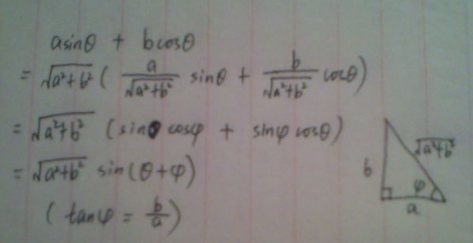 asinθ + bcosθ
= √a²+b² ( a/√a²+b² sinθ + b/√a²+b² cosθ)
= √a²+b² (sinθ cosφ + sinφ cosθ)
= √a²+b² sin(θ+φ)
( tanφ = b/a )
√a²+b²
b
φ
a